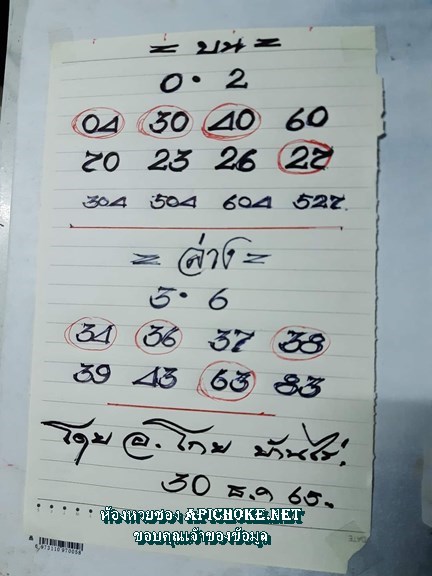 = บน =
0 · 2
04 30 40 60
70 23 26 27
304 504 604 527.
= ล่าง =
3 · 6
34 36 37 38
39 43 63 83
โดย อ. โกย บ้านไร่.
30 ธ.ค 65.
ห้องหวยซอง APICHOKE.NET
ขอบคุณเจ้าของข้อมูล